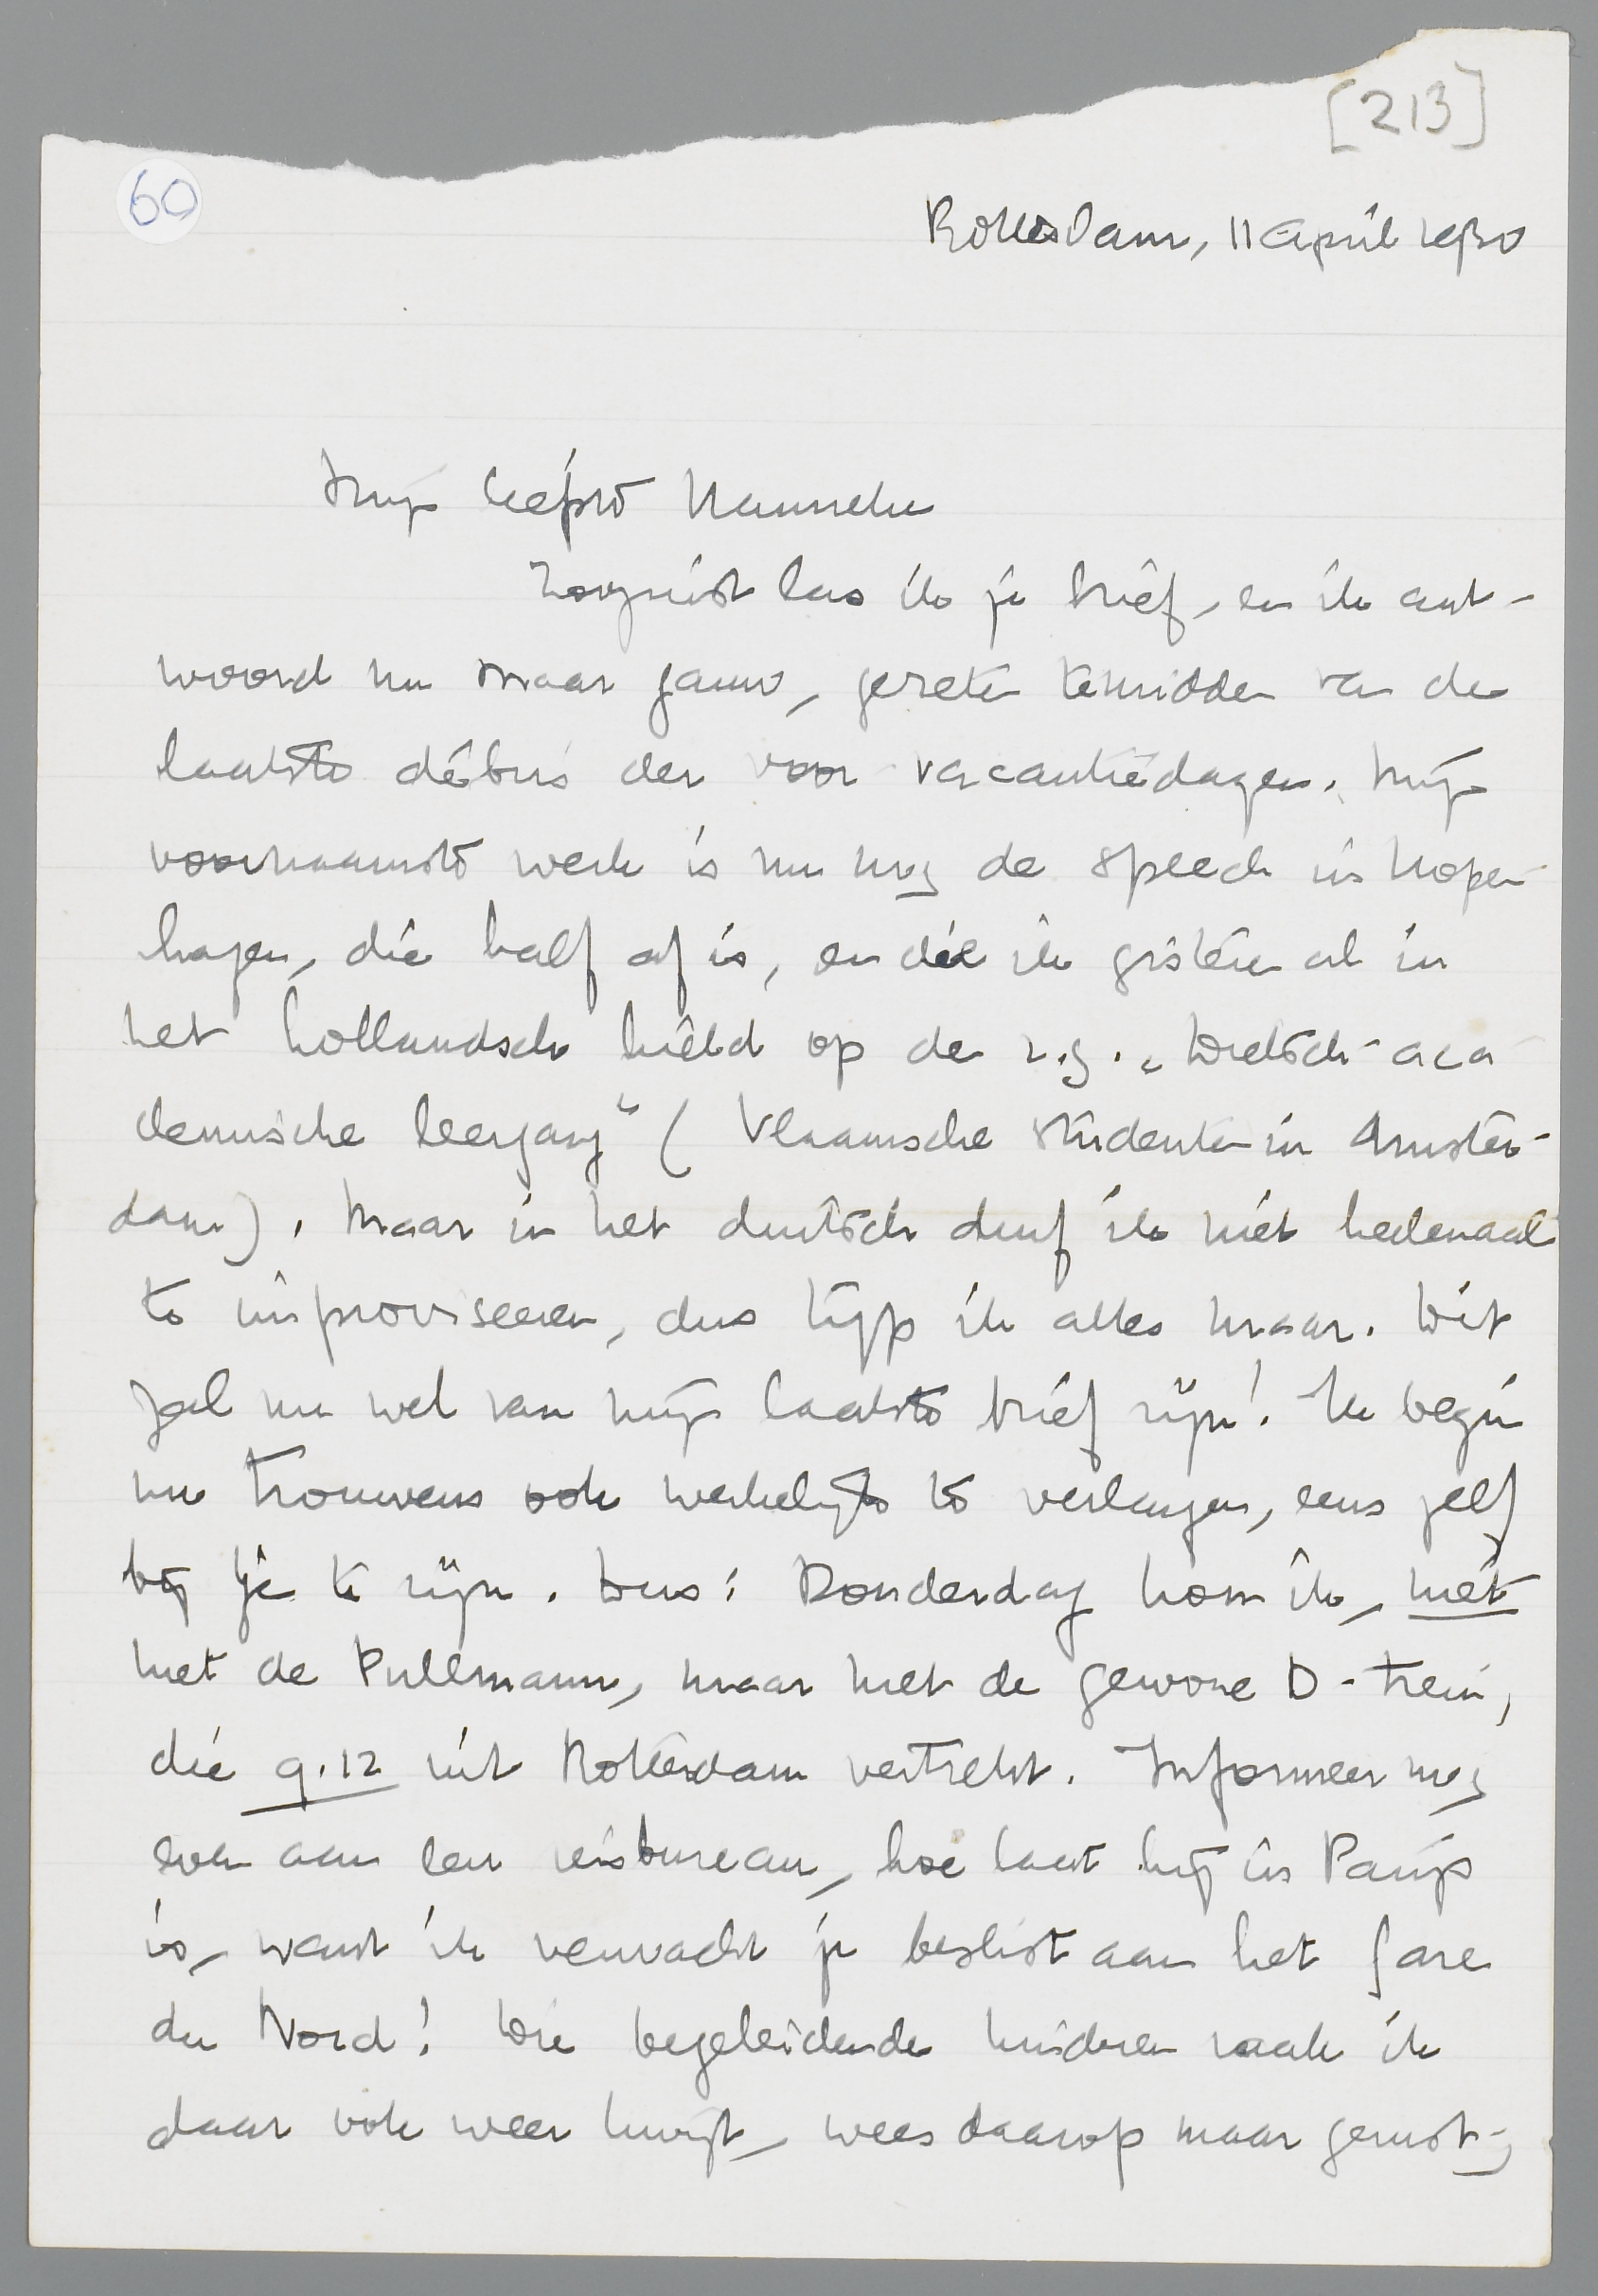 [213]
60
Rotterdam, 11 april 1930
Mijn liefste Hanneke
Zoojuist las ik je brief, en ik ant-
woord nu maar gauw, gezeten temidden van de
laatste débris der voor-vacantiedagen. Mijn
voornaamste werk is nu nog de speech in Kopen-
hagen, die half af is, en die ik gisteren al in
het hollandsch hield op de z.g. „Dietsch-aca-
demische leergang" (Vlaamsche studenten in Amster-
dam). Maar in het duitsch durf ik niet heelemaal
te improviseeren, dus tijp ik alles maar. Dit
zal nu wel van mijn laatste brief zijn! Ik begin
nu trouwens ook werkelijk te verlangen, eens zelf
bij je te zijn. Dus: Donderdag kom ik, niet
met de Pullmann, maar met de gewone D-trein,
die 9.12 uit Rotterdam vertrekt. Informeer nog
even aan een reisbureau, hoe laat hij in Parijs
is, want ik verwacht je beslist aan het Gare
du Nord! Die begeleidende kinderen raak ik
daar ook weer kwijt, wees daarop maar gerust;